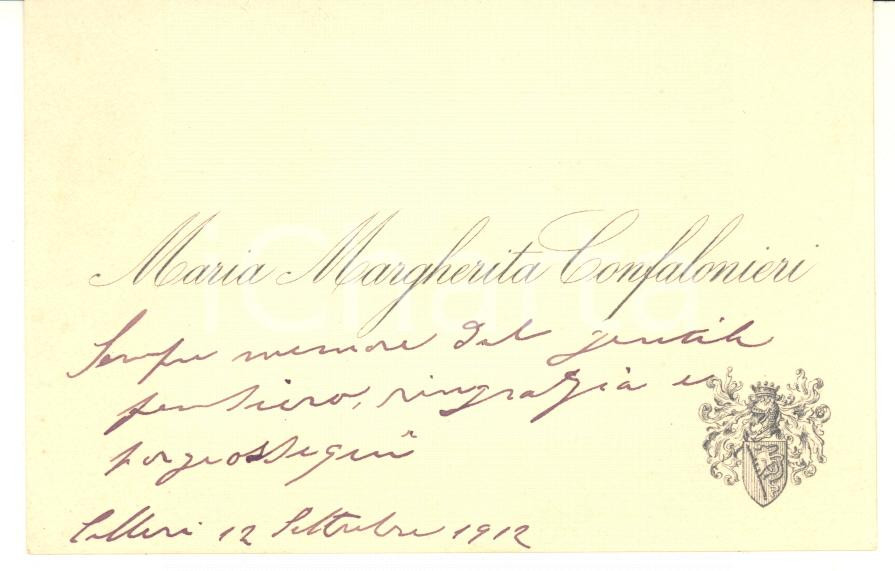 Maria Margherita Confalonieri
Sempre memore del gentile
pensiero, ringrazia e
porge ossequi
12 Settembre 1912
iCharta